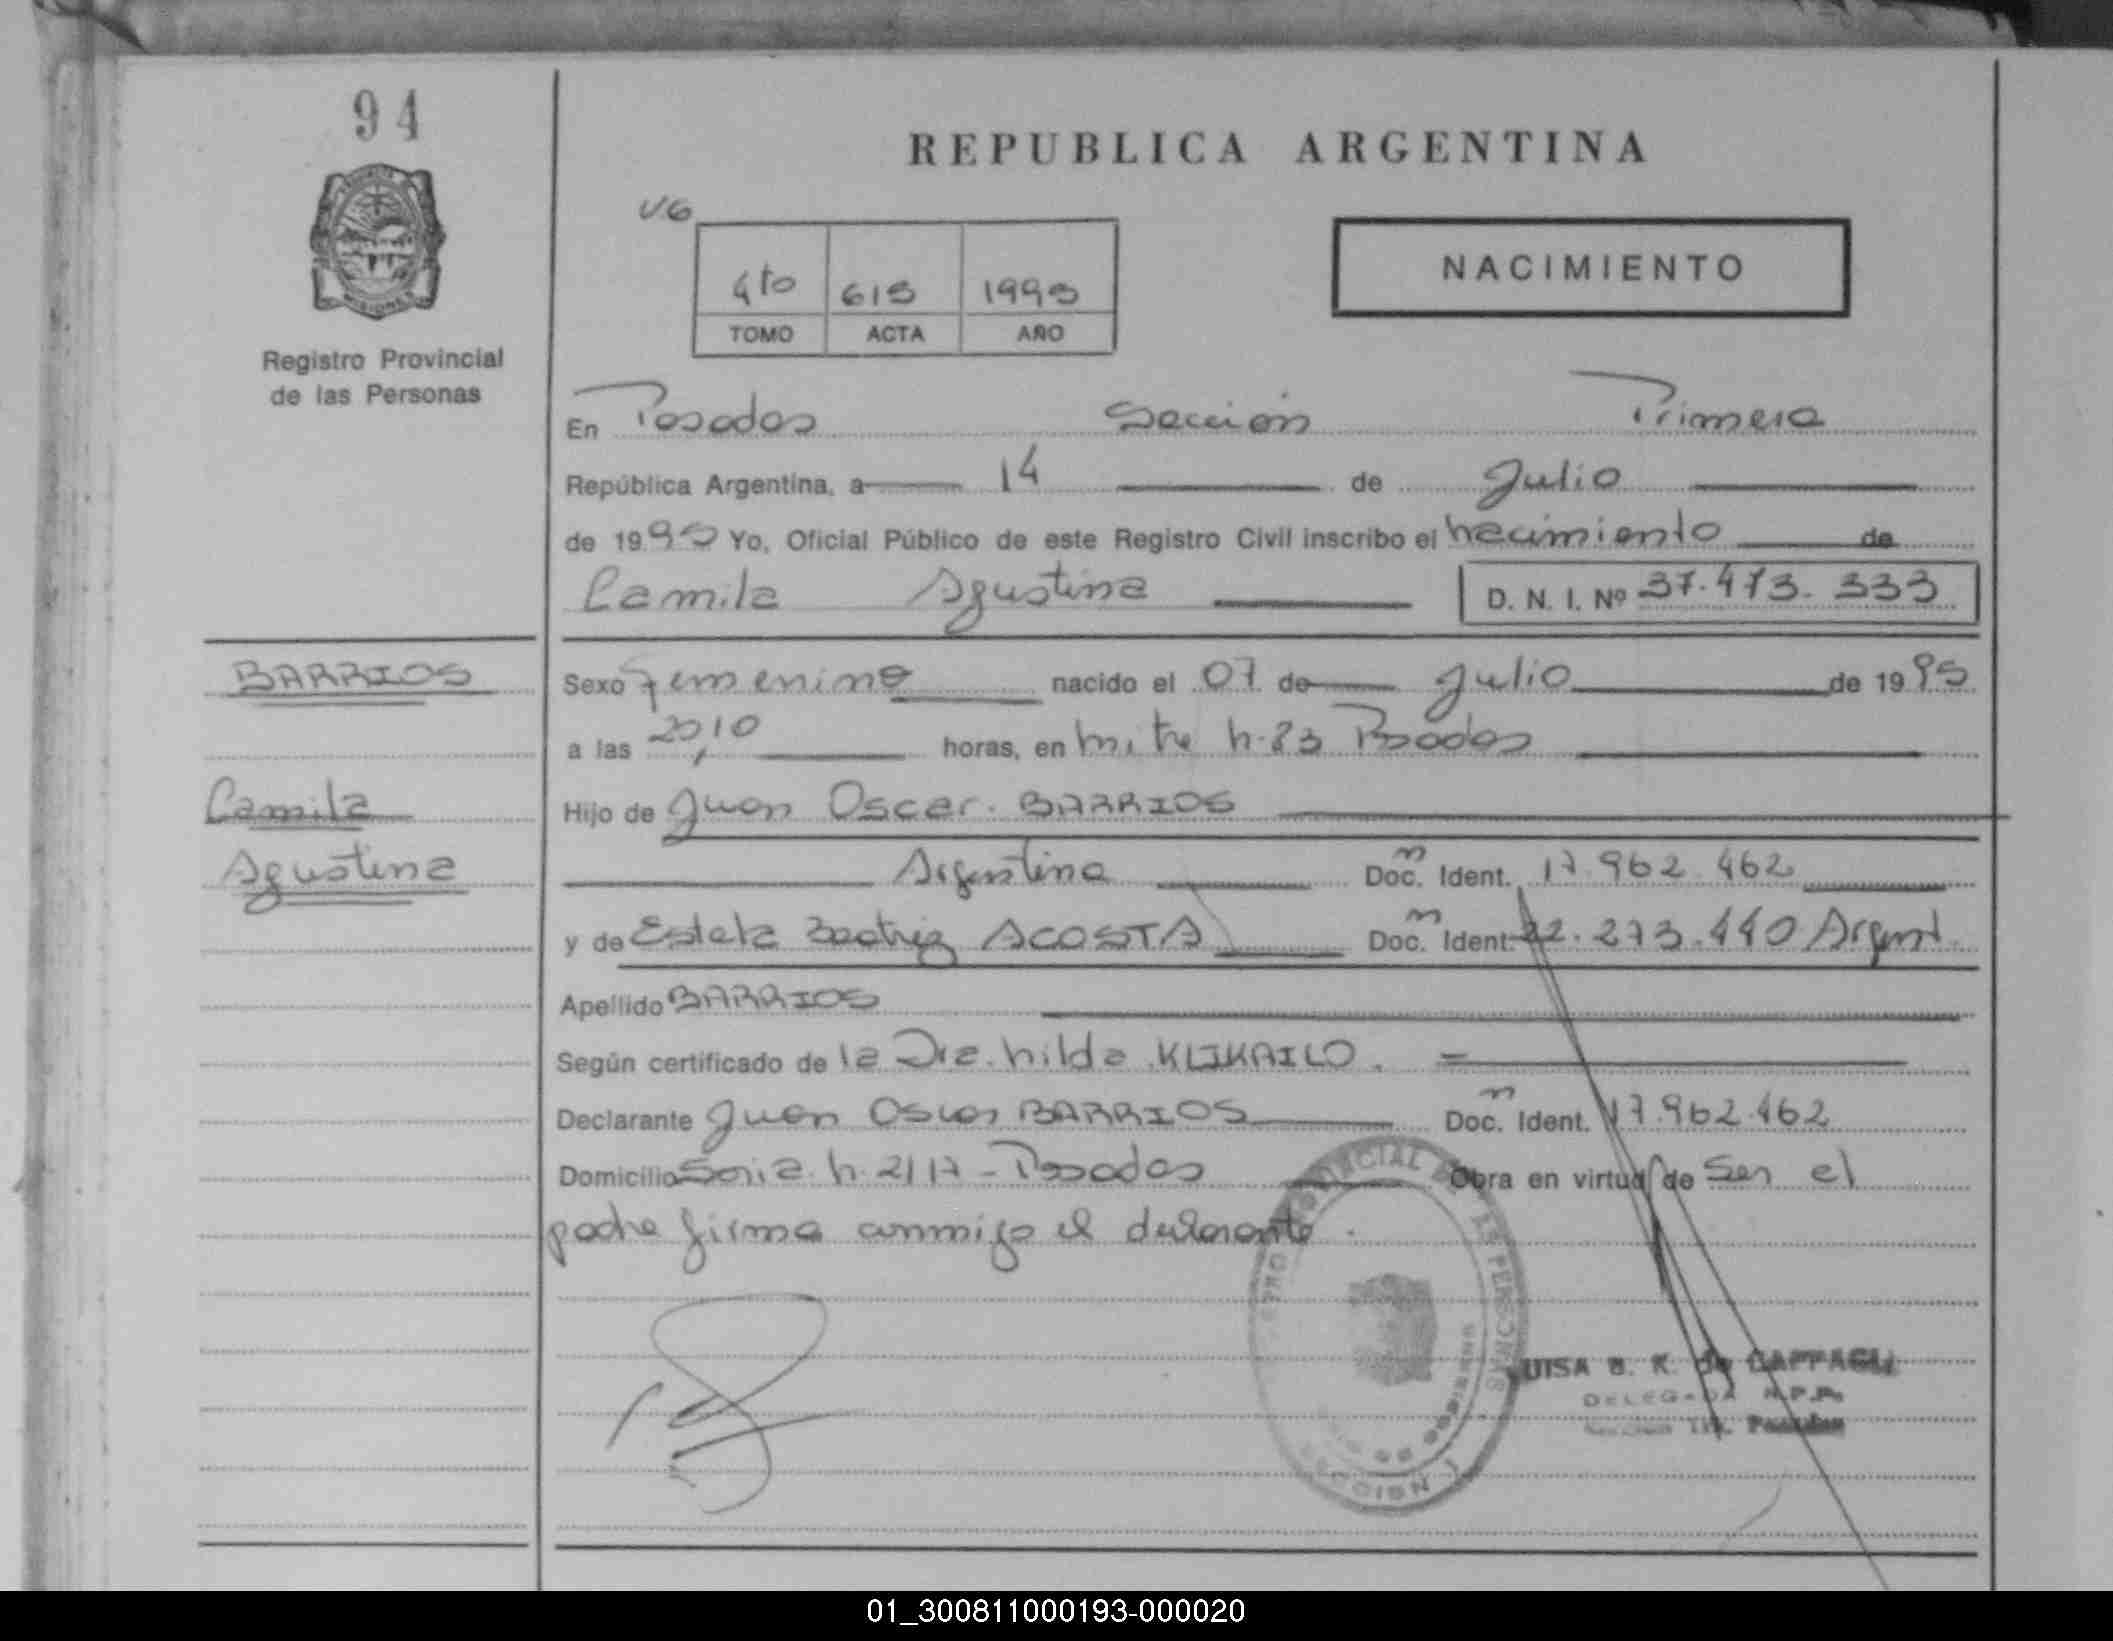 94
REPUBLICA ARGENTINA
V6
4to 615 1995
TOMO ACTA AÑO
NACIMIENTO
MISIONES
Registro Provincial
de las Personas
En Posadas Sección Primera
República Argentina, a 14 de Julio
de 1995 Yo, Oficial Público de este Registro Civil inscribo el nacimiento de
Camila Agustina D. N. I. Nº 37.473.333
BARRIOS
Camila
Agustina
Sexo Femenino nacido el 07 de Julio de 1995
a las 20,10 horas, en Mitre n. 83 Posadas
Hijo de Juan Oscar BARRIOS
Argentina Doc. Ident. 17.962.462
y de Estela Beatriz ACOSTA Doc. Ident. 22.273.440 Argent
Apellido BARRIOS
Según certificado de la Dra. hilda KLIKAILO.
Declarante Juan Oscar BARRIOS Doc. Ident. 17.962.462
Domicilio n. 2117 - Posadas Obra en virtud de Ser el
padre firma conmigo el declarante.
UISA B. K. de
DELEGADA R.P.P.
01_300811000193-000020